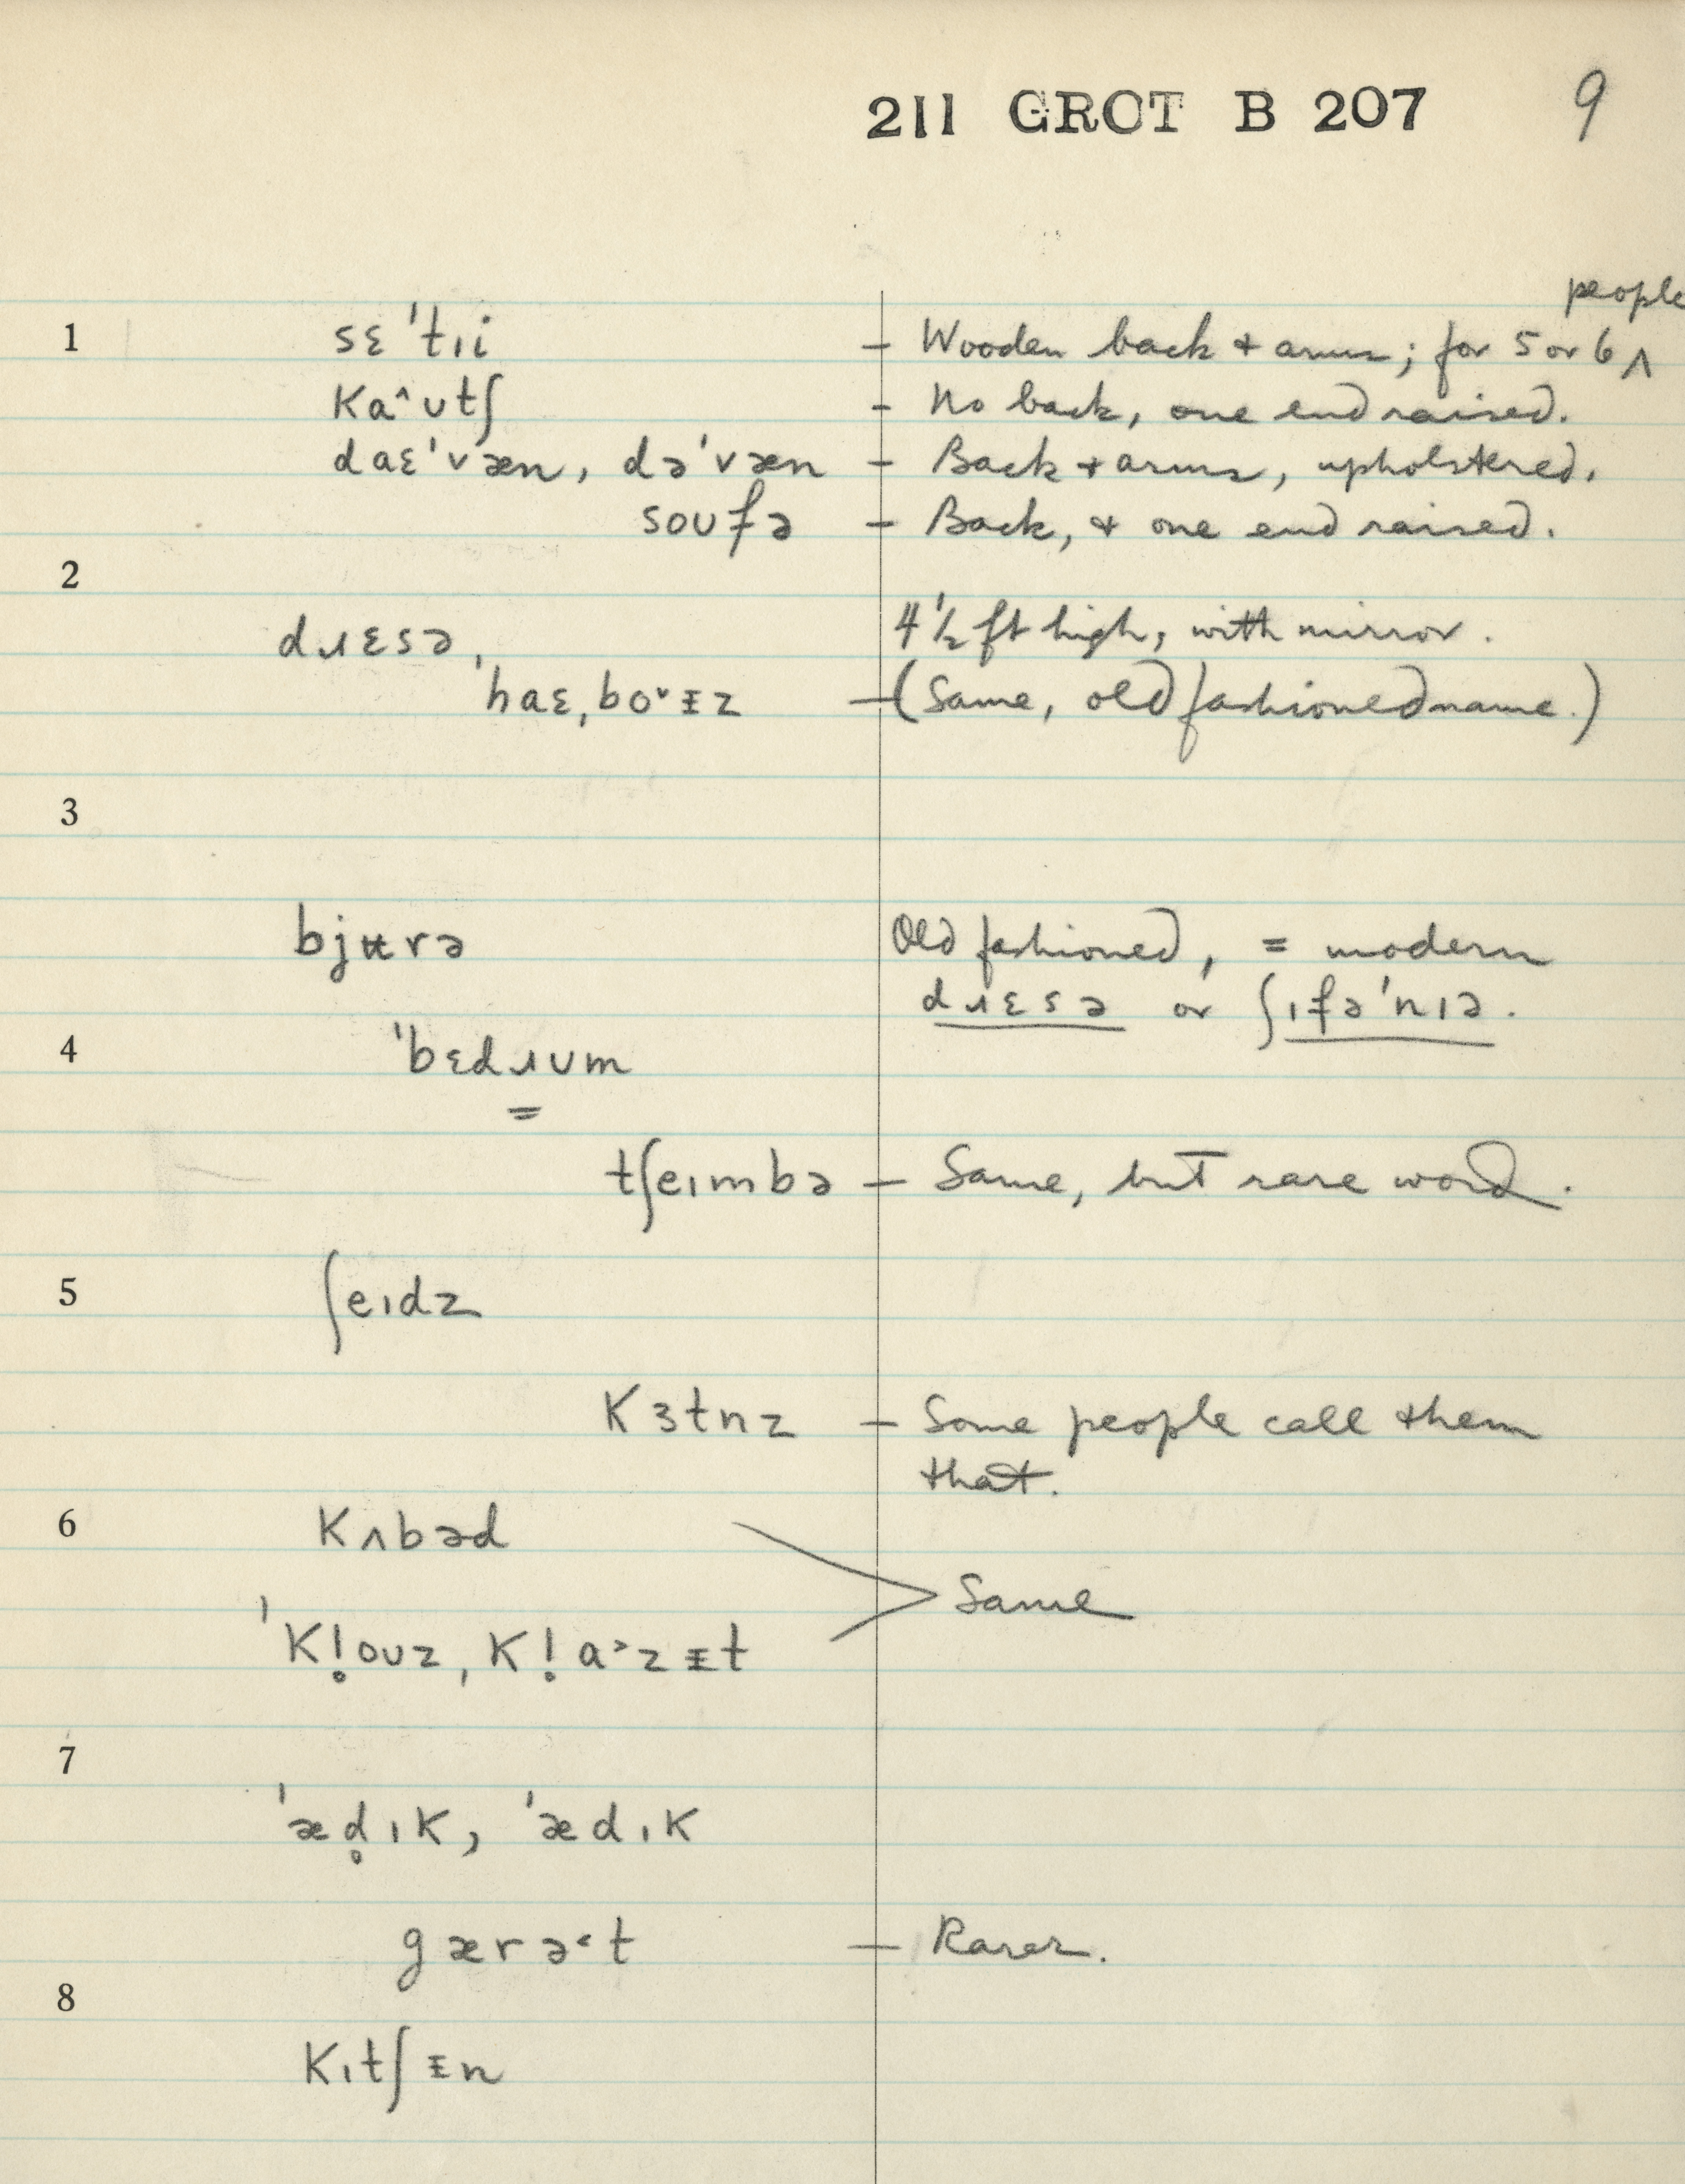 211 GROT B 207 9
people
1 sɛˈtɪi – Wooden back + arms; for 5 or 6 ^
Ka^ʊtʃ – No back, one end raised.
daɛˈvæn, dəˈvæn – Back + arms, upholstered.
soʊfə – Back, + one end raised.
2
dɹɛsə, 4 1/2 ft high, with mirror.
ˈhaɛˌbo˅ᵻz – (Same, old fashioned name.)
3
bjʉrə Old fashioned, = modern
dɹɛsə or ʃɪfəˈnɪə.
4 ˈbɛdɹʊm
=
tʃeɪmbə – Same, but rare word.
5 ʃeɪdz
Kɜtnz – Some people call them
that.
6 Kʌbəd
Same
ˈK!̥oʊz, K!̥a˃zᵻt
7
ˈæd̥ɪK, ˈædɪK
gærə˂t – Rarer.
8
Kɪtʃᵻn